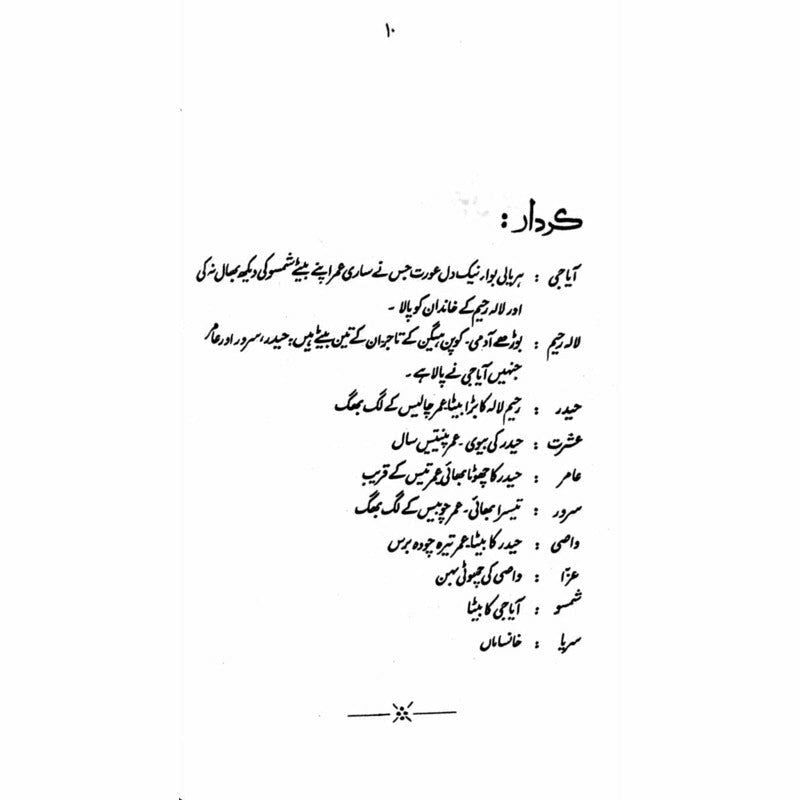 ۱۰
کردار :
آیا جی : ہریالی بوار نیک دل عورت جس نے ساری عمر اپنے بیٹے شمسو کی دیکھ بھال نہ کی
اور لالہ رحیم کے خاندان کو پالا ۔
لالہ رحیم : بوڑھے آدمی۔ کوپن ہیگن کے تاجر ان کے تین بیٹے ہیں: حیدر، سرور اور عامر
جنہیں آیا جی نے پالا ہے ۔
حیدر : رحیم لالہ کا بڑا بیٹا عمر چالیس کے لگ بھگ
عشرت : حیدر کی بیوی ۔ عمر پینتیس سال
عامر : حیدر کا چھوٹا بھائی عمر تیس کے قریب
سرور : تیسرا بھائی۔ عمر چوبیس کے لگ بھگ
واصی : حیدر کا بیٹا۔ عمر تیرہ چودہ برس
عزّا : واصی کی چھوٹی بہن
شمسو : آیا جی کا بیٹا
سریا : خانساماں